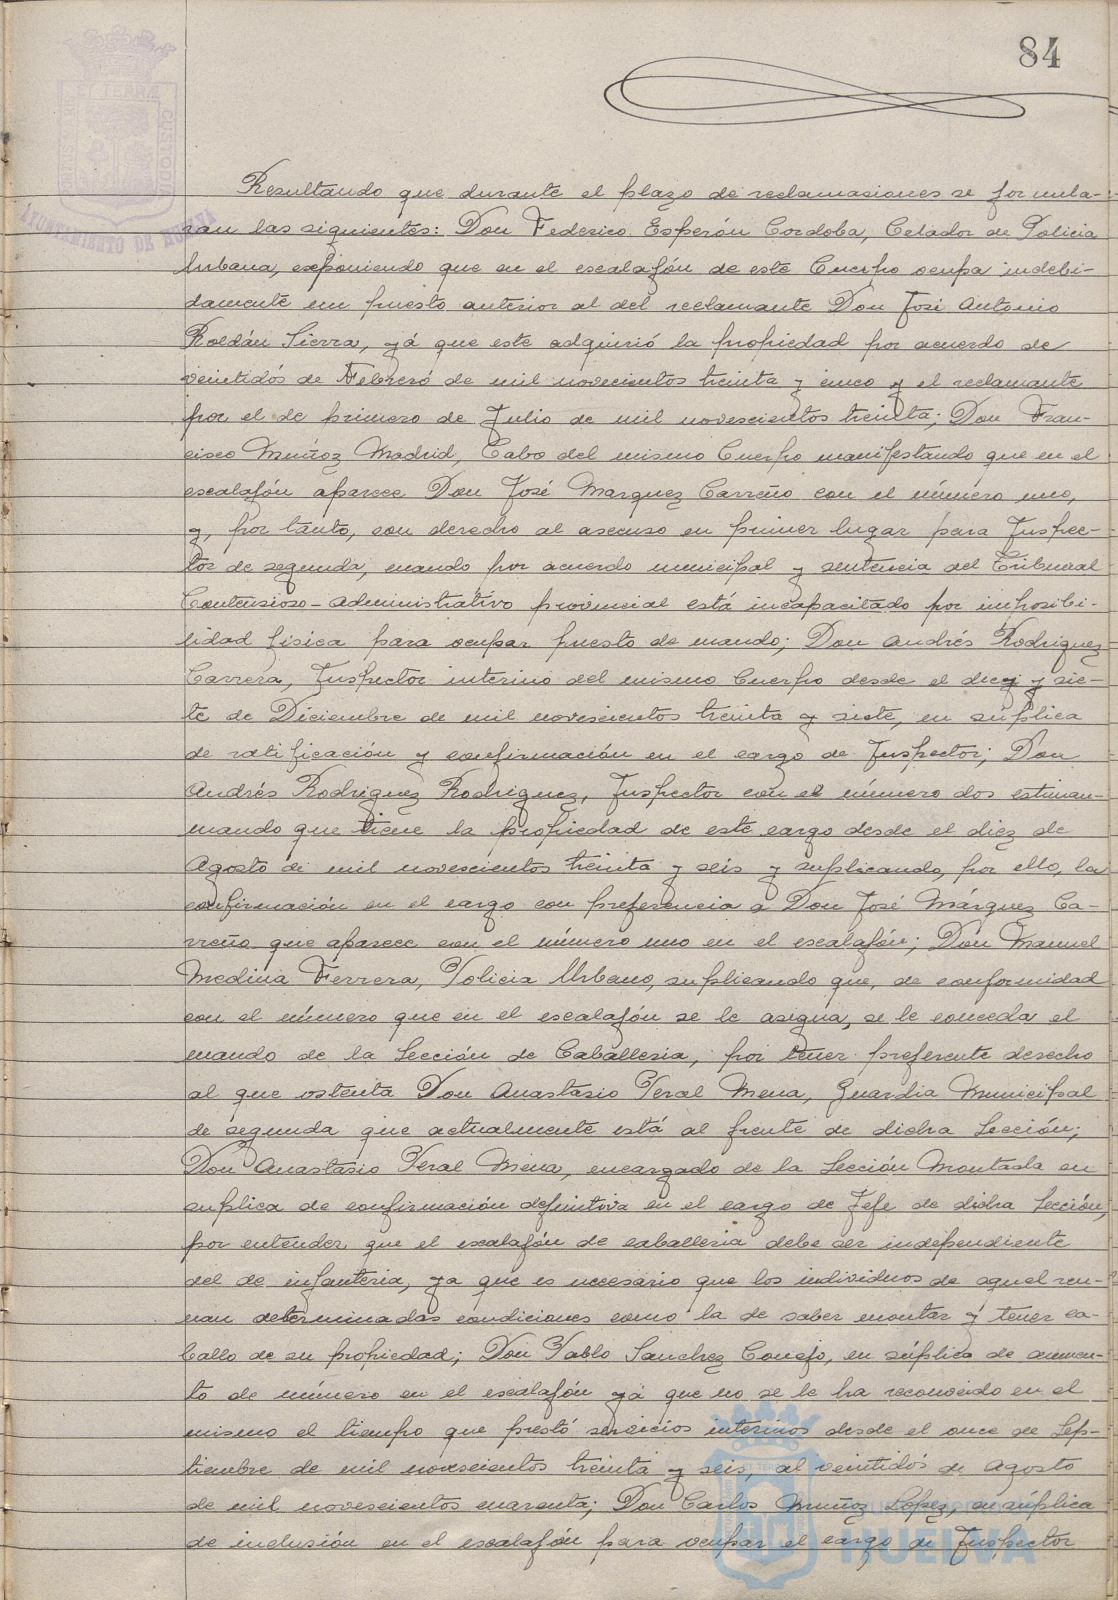 84
ET TERRÆ
CUSTODIA
AYUNTAMIENTO DE HUELVA
Resultando que durante el plazo de reclamasiones se formula-
ran las siguientes: Don Federico Esperón Cordoba, Celador de Policia
Urbana, exponiendo que en el escalafón de este Cuerpo ocupa indebi-
damente un puesto anterior al del reclamante Don José Antonio
Roldán Sierra, yá que este adquirió la propiedad por acuerdo de
veintidós de Febreró de mil novecientos treinta y cinco y el reclamante
por el de primero de Julio de mil novescientos treinta; Don Fran-
cisco Muñoz Madrid, Cabo del mismo Cuerpo manifestando que en el
escalafón aparece Don José Marquez Carreño con el número uno,
y, por tanto, con derecho al ascenso en primer lugar para Inspec-
tor de segunda, cuando por acuerdo municipal y sentencia del Tribunal
Contensioso-administrativo provincial está incapacitado por imposibi-
lidad fisica para ocupar puesto de mando; Don Andrés Rodriguez
Carrera, Inspector interino del mismo Cuerpo desde el diez y sie-
te de Diciembre de mil novescientos treinta y siete, en súplica
de ratificación y confirmación en el cargo de Inspector; Don
Andrés Rodriguez Rodriguez, Inspector con el número dos estiman-
mando que tiene la propiedad de este cargo desde el diez de
Agosto de mil novescientos treinta y seis y suplicando, por ello, la
confirmación en el cargo con preferencia a Don José Márquez Ca-
rreño que aparece con el número uno en el escalafón; Don Manuel
Medina Ferrera, Policia Urbano, suplicando que, de conformidad
con el número que en el escalafón se le asigna, se le conceda el
mando de la Sección de Caballeria, por tener preferente derecho
al que ostenta Don Anastasio Peral Mena, Guardia Municipal
de segunda que actualmente está al frente de dicha Sección;
Don Anastasio Peral Mena, encargado de la Sección Montada en
suplica de confirmación definitiva en el cargo de Jefe de dicha Sección,
por entender que el escalafón de caballeria debe ser independiente
del de infanteria, ya que es necesario que los individuos de aquel reu-
nan determinadas condiciones como la de saber montar y tener ca-
ballo de su propiedad; Don Pablo Sanchez Conejo, en súplica de aumen-
to de número en el escalafón yá que no se le ha reconocido en el
mismo el tiempo que prestó servicios interinos desde el once de Sep-
tiembre de mil novescientos treinta y seis, al veintidós de Agosto
de mil novescientos cuarenta; Don Carlos Muñoz López, en súplica
de inclusión en el escalafón para ocupar el cargo de Inspector
HUELVA